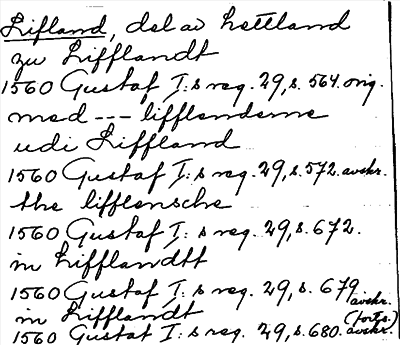 Lifland, del av Lettland
zu Lifflandt
1560 Gustaf I:s reg. 29, s. 564. orig.
med --- lifflenderne
udi Liffland
1560 Gustaf I:s reg. 29, s. 572. avskr.
the lifflensche
1560 Gustaf I:s reg. 29, s. 672.
in Lifflandtt
1560 Gustaf I:s reg. 29, s. 679. avskr.
in Lifflandt (forts.)
1560 Gustaf I:s reg. 29, s. 680. avskr.